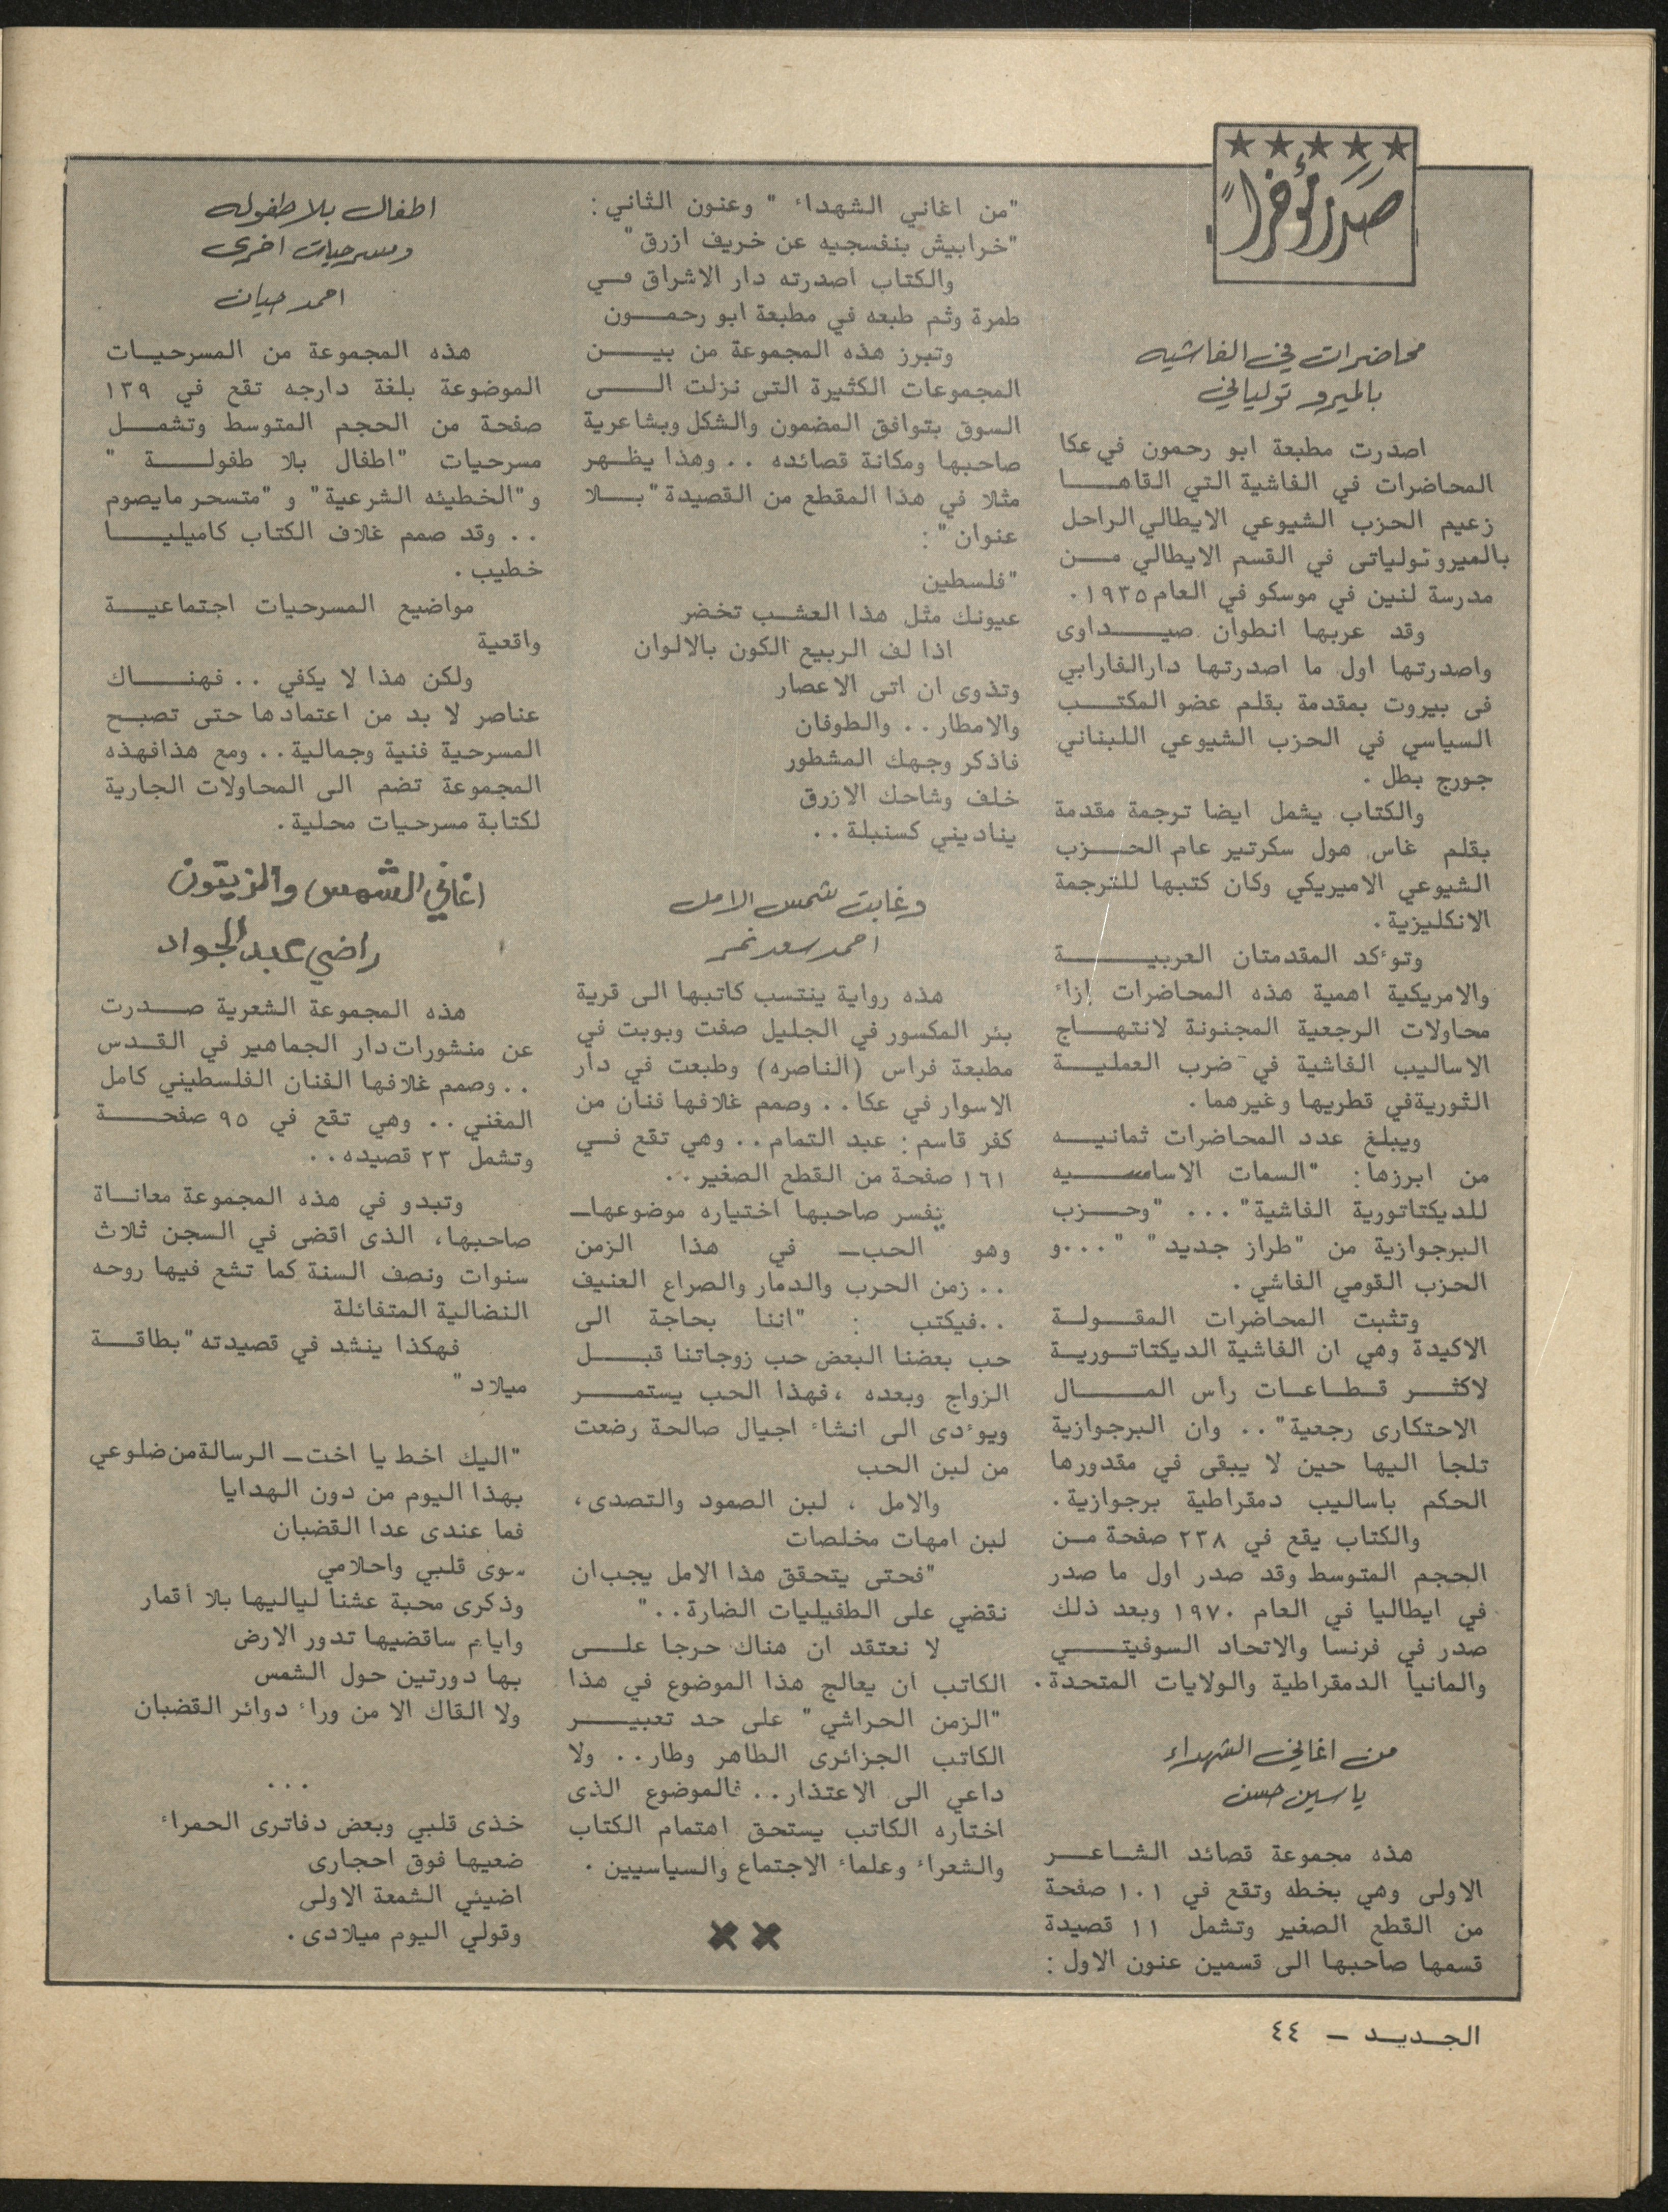 صدر مؤخراً
محاضرات في الفاشيه
بالميرو تولياتي
اصدرت مطبعة ابو رحمون في عكا
المحاضرات في الفاشية التي القاهـــا
زعيم الحزب الشيوعي الايطالي الراحل
بالميرو تولياتى في القسم الايطالي مــن
مدرسة لنين في موسكو في العام ١٩٣٥.
وقد عربها انطوان صيـــداوى
واصدرتها اول ما اصدرتها دارالفارابي
فى بيروت بمقدمة بقلم عضو المكتــب
السياسي في الحزب الشيوعي اللبناني
جورج بطل .
والكتاب يشمل ايضا ترجمة مقدمة
بقلم غاس هول سكرتير عام الحــزب
الشيوعي الاميريكي وكان كتبها للترجمة
الانكليزية .
وتوءكد المقدمتان العربيـــــة
والامريكية اهمية هذه المحاضرات إزاء
محاولات الرجعية المجنونة لانتهــاج
الاساليب الفاشية في ضرب العمليــة
الثوريةفي قطريها وغيرهما .
ويبلغ عدد المحاضرات ثمانيــه
من ابرزها: "السمات الاساســـيه
للديكتاتورية الفاشية" ... "وحــزب
البرجوازية من "طراز جديد" "...و
الحزب القومي الفاشي .
وتثبت المحاضرات المقـــولــة
الاكيدة وهي ان الفاشية الديكتاتوريــة
لاكثــر قـطـاعـات رأس المـــال
الاحتكارى رجعية" .. وان البرجوازية
تلجأ اليها حين لا يبقى في مقدورها
الحكم باساليب دمقراطية برجوازية.
والكتاب يقع في ٢٣٨ صفحة مــن
الحجم المتوسط وقد صدر اول ما صدر
في ايطاليا في العام ١٩٧٠ وبعد ذلك
صدر في فرنسا والاتحاد السوفيتـــي
والمانيا الدمقراطية والولايات المتحدة.
من اغاني الشهداء
ياسين حسن
هذه مجموعة قصائد الشـاعـــر
الاولى وهي بخطه وتقع في ١٠١ صفحة
من القطع الصغير وتشمل ١١ قصيدة
قسمها صاحبها الى قسمين عنون الاول :
"من اغاني الشهداء " وعنون الثاني:
"خرابيش بنفسجيه عن خريف ازرق"
والكتاب اصدرته دار الاشراق فــي
طمرة وثم طبعه في مطبعة ابو رحمــون
وتبرز هذه المجموعة من بيـــن
المجموعات الكثيرة التى نزلت الــــى
السوق بتوافق المضمون والشكل وبشاعرية
صاحبها ومكانة قصائده .. وهذا يظــهر
مثلا في هذا المقطع من القصيدة "بـــلا
عنوان" :
"فلسطين
عيونك مثل هذا العشــب تخضر
اذا لف الربيع الكون بالالوان
وتذوى ان اتى الاعصار
والامطار.. والطوفان
فاذكر وجهك المشطور
خلف وشاحك الازرق
يناديني كسنبلة..
وغابت شمس الامل
احمد سعد نمر
هذه رواية ينتسب كاتبها الى قرية
بئر المكسور في الجليل صفت وبوبت في
مطبعة فراس (الناصره) وطبعت في دار
الاسوار في عكا.. وصمم غلافها فنان من
كفر قاسم: عبد التمام.. وهي تقع فــي
١٦١ صفحة من القطع الصغير..
يفسر صاحبها اختياره موضوعها—
وهو الحب— في هذا الزمن
.. زمن الحرب والدمار والصراع العنيف
..فيكتب : "اننا بحاجة الى
حب بعضنا البعض حب زوجاتنا قبـــل
الزواج وبعده ،فهذا الحب يستمـــر
ويوءدى الى انشاء اجيال صالحة رضعت
من لبن الحب
والامل ، لبن الصمود والتصدى،
لبن امهات مخلصات
"فحتى يتحقق هذا الامل يجب ان
نقضي على الطفيليات الضارة.."
لا نعتقد ان هناك حرجا علــى
الكاتب ان يعالج هذا الموضوع في هذا
"الزمن الحراشي" على حد تعبيـــر
الكاتب الجزائرى الطاهر وطار.. ولا
داعي الى الاعتذار.. فالموضوع الذى
اختاره الكاتب يستحق اهتمام الكتاب
والشعراء وعلماء الاجتماع والسياسيين .
اطفال بلا طفوله
ومسرحيات اخرى
احمد حيان
هذه المجموعة من المسرحيــات
الموضوعة بلغة دارجه تقع في ١٣٩
صفحة من الحجم المتوسط وتشمــل
مسرحيات "اطفال بلا طفولـــة "
و"الخطيئه الشرعية" و "متسحر مايصوم
.. وقد صمم غلاف الكتاب كاميليـــا
خطيب .
مواضيع المسرحيات اجتماعيــة
واقعية
ولكن هذا لا يكفي .. فهنـــاك
عناصر لا بد من اعتمادها حتى تصبــح
المسرحية فنية وجمالية.. ومع هذافهذه
المجموعة تضم الى المحاولات الجارية
لكتابة مسرحيات محلية.
اغاني الشمس والزيتون
راضي عبد الجواد
هذه المجموعة الشعرية صــدرت
عن منشورات دار الجماهير في القــدس
.. وصمم غلافها الفنان الفلسطيني كامل
المغني.. وهي تقع في ٩٥ صفحــة
وتشمل ٢٣ قصيده..
وتبدو في هذه المجموعة معانــاة
صاحبها، الذى اقضى في السجن ثلاث
سنوات ونصف السنة كما تشع فيها روحه
النضالية المتفائلة
فهكذا ينشد في قصيدته "بطاقــة
ميلاد "
"اليك اخط يا اخت— الرسالة من ضلوعي
بهذا اليوم من دون الهدايا
فما عندى عدا القضبان
سوى قلبي واحلامي
وذكرى محبة عشنا لياليها بلا أقمار
وايام ساقضيها تدور الارض
بها دورتين حول الشمس
ولا القاك الا من وراء دوائر القضبان
...
خذى قلبي وبعض دفاترى الحمراء
ضعيها فوق احجارى
اضيئي الشمعة الاولى
وقولي اليوم ميلادى.
الجــديــد — ٤٤